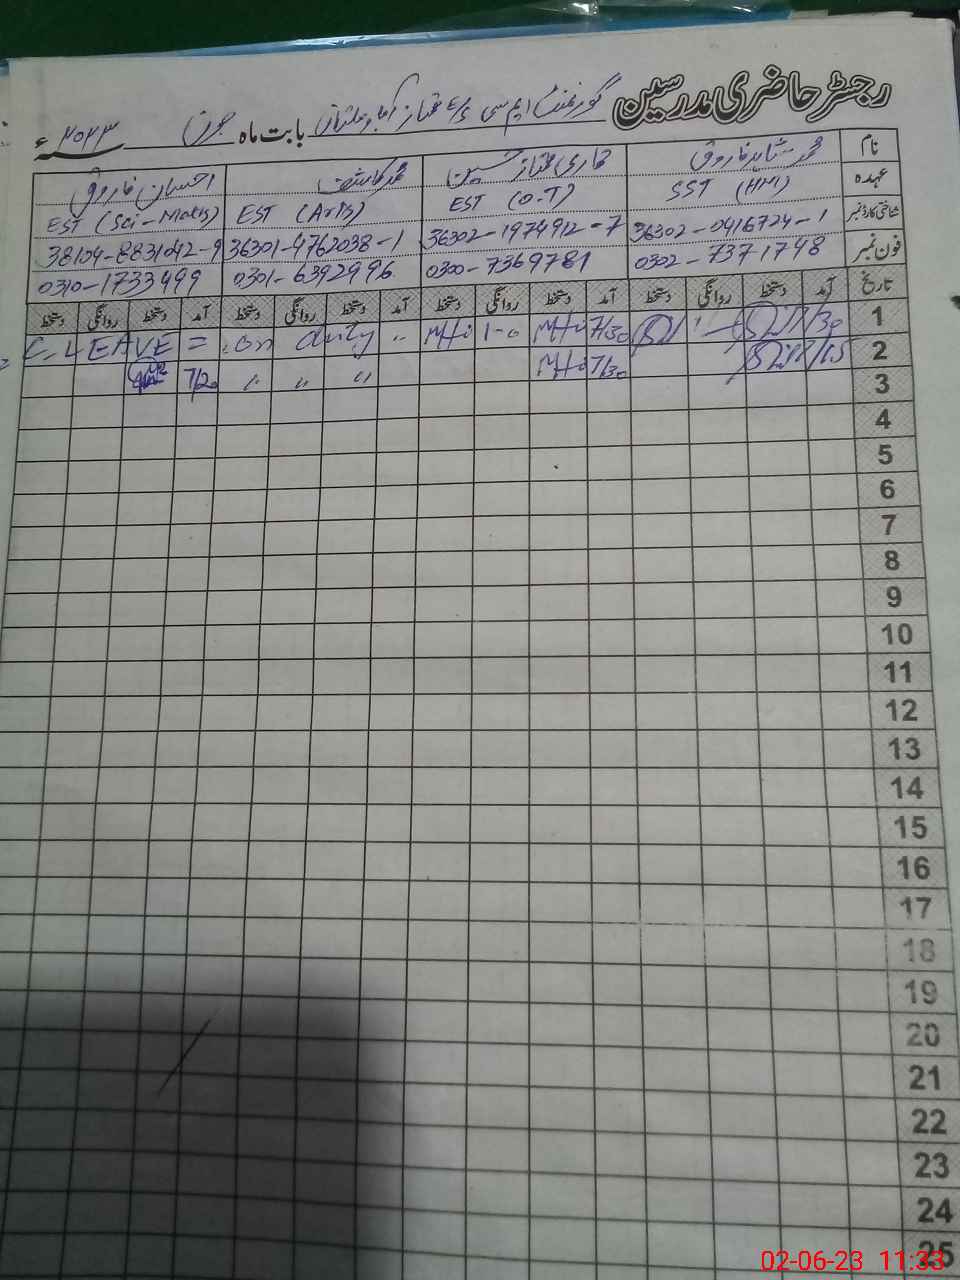 رجسٹر حاضری مدرسین گورنمنٹ ایم سی بابت ماہ جون ۲۰۲۳ء
نام محمد شاہد فاروق قاری ممتاز حسین محمد کاشف احسان فاروق
عہدہ SST (HM) EST (O.T) EST (Arts) EST (Sci-Maths)
شناختی کارڈ نمبر 36302-0416724-1 36302-1974912-7 36301-4762038-1 38104-8831042-9
فون نمبر 0302-7371748 0300-7369781 0301-6392996 0310-1733499
تاریخ آمد دستخط روانگی دستخط آمد دستخط روانگی دستخط آمد دستخط روانگی دستخط آمد دستخط روانگی دستخط
1 7/30 1-0 " on duty = C.LEAVE
2 7/15 7/30 " " " 7/20
3
4
5
6
7
8
9
10
11
12
13
14
15
16
17
18
19
20
21
22
23
24
25
02-06-23 11:33